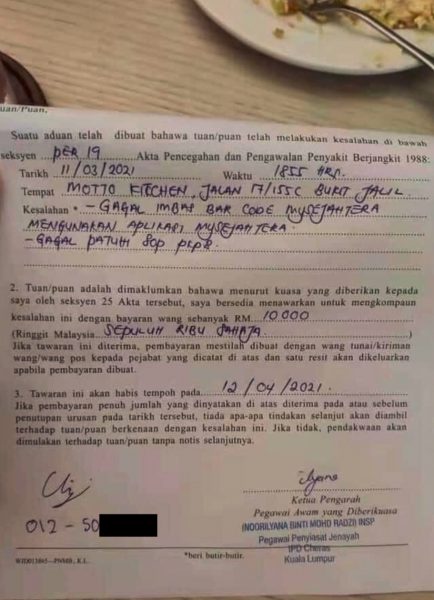 uan/Puan,
Suatu aduan telah dibuat bahawa tuan/puan telah melakukan kesalahan di bawah
seksyen PER 19 Akta Pencegahan dan Pengawalan Penyakit Berjangkit 1988:
Tarikh 11/03/2021 Waktu 1855 HRS.
Tempat MOTTO KITCHEN, JALAN 17/155C BUKIT JALIL
Kesalahan * - GAGAL IMBAS BAR CODE MYSEJAHTERA
MENGUNAKAN APLIKASI MYSEJAHTERA.
- GAGAL PATUHI SOP PKPB.
2. Tuan/puan adalah dimaklumkan bahawa menurut kuasa yang diberikan kepada
saya oleh seksyen 25 Akta tersebut, saya bersedia menawarkan untuk mengkompaun
kesalahan ini dengan bayaran wang sebanyak RM 10 000
(Ringgit Malaysia SEPULUH RIBU SAHAJA )
Jika tawaran ini diterima, pembayaran mestilah dibuat dengan wang tunai/kiriman
wang/wang pos kepada pejabat yang dicatat di atas dan satu resit akan dikeluarkan
apabila pembayaran dibuat.
3. Tawaran ini akan habis tempoh pada 12/04/2021.
Jika pembayaran penuh jumlah yang dinyatakan di atas diterima pada atau sebelum
penutupan urusan pada tarikh tersebut, tiada apa-apa tindakan selanjut akan diambil
terhadap tuan/puan berkenaan dengan kesalahan ini. Jika tidak, pendakwaan akan
dimulakan terhadap tuan/puan tanpa notis selanjutnya.
012 - 50
Ketua Pengarah
Pegawai Awam yang Diberikuasa
(NOORILYANA BINTI MOHD RADZI) INSP
Pegawai Penyiasat Jenayah
IPD Cheras
Kuala Lumpur
*beri butir-butir.